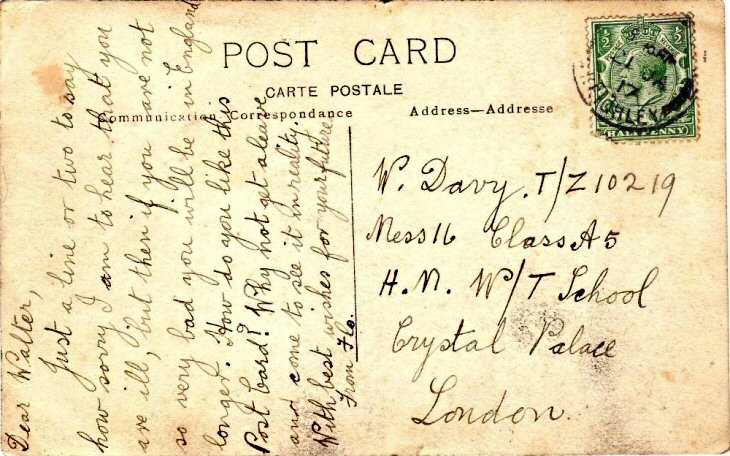 POST CARD
CARTE POSTALE
Communication Correspondance
Address—Adresse
Dear Walter,
Just a line or two to say
how sorry I am to hear that you
are ill, but then if you are not
so very bad you will be in England
longer. How do you like this
Post Card? Why not get a leave
and come to see it in reality.
With best wishes for your future
From Flo.
W. Davy. T/Z10219
Mess 16 Class A5
H.N. W/T School
Crystal Palace
London.
HALFPENNY
17